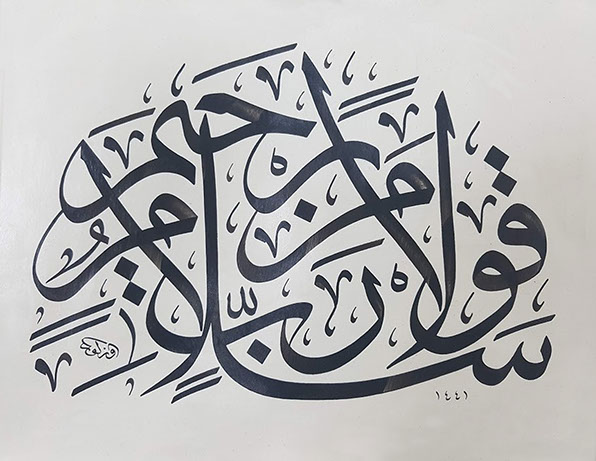 سلام قولا من رب رحيم
١٤٤١